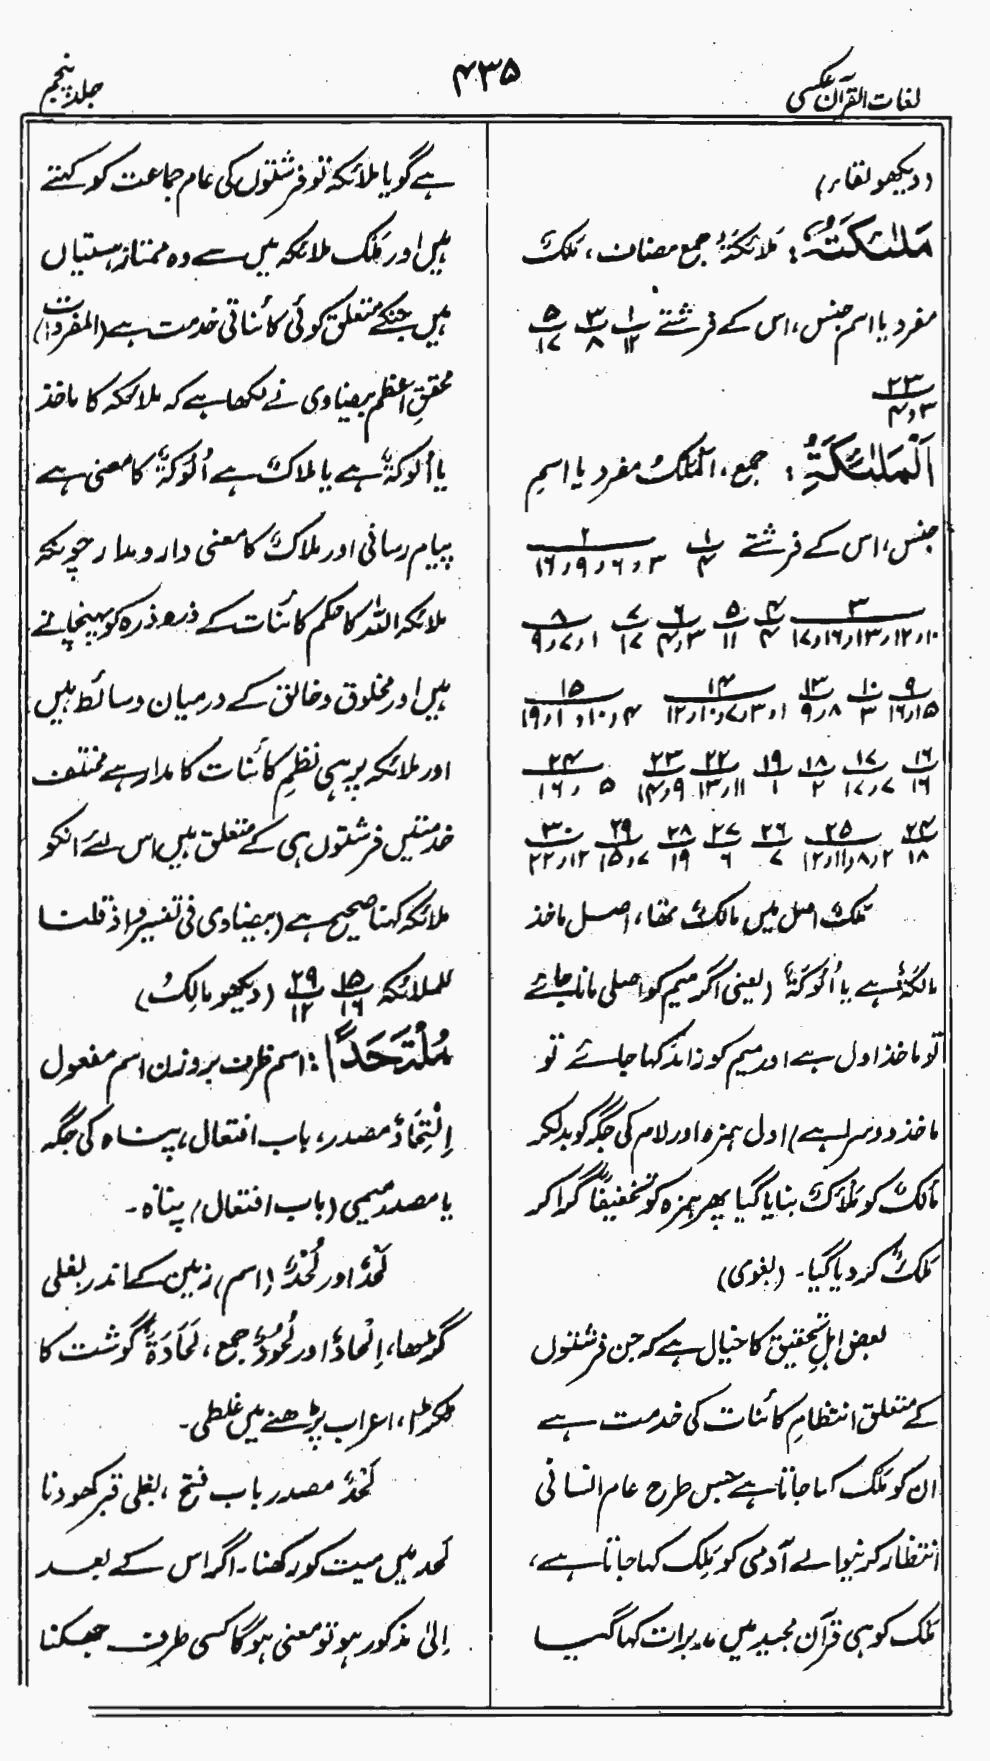 لغات القرآن عکسی
۴۳۵
جلد پنجم
(دیکھو لقاء)
مَلٰئِکَتُہٗ: مَلَائِکَۃُ جمع مضاف، مَلَکٌ
مفرد یا اسم جنس، اس کے فرشتے ۱/۱۲ ۳/۸ ۵/۱۷
۲۳/۳ و ۴
اَلْمَلٰئِکَۃِ: جمع، اَلْمَلَکُ مفرد یا اسمِ
جنس، اس کے فرشتے ۱/۴ ۲/۳ و ۶ و ۹ و ۱۶
۳/۱۰ و ۱۲ و ۱۳ و ۱۶ و ۱۷ ۴/۴ ۵/۱۱ ۶/۳ و ۴ ۷/۱۷ ۸/۱ و ۷ و ۹
۹/۱۵ و ۱۶ ۱۰/۳ ۱۳/۸ و ۹ ۱۴/۱ و ۳ و ۷ و ۱۰ و ۱۲ ۱۵/۴ و ۱۰ و ۱ و ۱۹
۱۶/۱۶ ۱۷/۷ و ۱۷ ۱۸/۲ ۱۹/۱ ۲۲/۱۱ و ۱۳ ۲۳/۹ و ۱۴ ۲۴/۵ و ۱۶
۲۴/۱۸ ۲۵/۲ و ۸ و ۱۱ و ۱۲ ۲۶/۷ ۲۷/۶ ۲۸/۱۹ ۲۹/۷ و ۱۵ ۳۰/۱۲ و ۲۲
مَلَکٌ اصل میں مالَکٌ تھا، اصل ماخذ
مالکۃٌ ہے یا اُلُوکَۃٌ (یعنی اگر میم کو اصلی مانا جائے
تو ماخذ اول ہے اور میم کو زائد کہا جائے تو
ماخذ دوسرا ہے) اول ہمزہ اور لام کی جگہ کو بدلکر
مَالَکٌ کو مَلْأَکٌ بنایا گیا پھر ہمزہ کو تخفیفاً گرا کر
مَلَکٌ کر دیا گیا۔ (بغوی)
بعض اہلِ تحقیق کا خیال ہے کہ جن فرشتوں
کے متعلق انتظامِ کائنات کی خدمت ہے
ان کو مَلَک کہا جاتا ہے جس طرح عام انسانی
انتظار کرنیوالے آدمی کو مَلِک کہا جاتا ہے،
مَلَک کو ہی قرآن مجید میں مدبرات کہا گیا
ہے گویا ملائکہ تو فرشتوں کی عام جماعت کو کہتے
ہیں اور مَلَک ملائکہ میں سے وہ ممتاز ہستیاں
ہیں جنکے متعلق کوئی کائناتی خدمت ہے (المفردات)
محققِ اعظم بیضاوی نے لکھا ہے کہ ملائکہ کا ماخذ
یا اُلُوکَۃٌ ہے یا ملاکٌ ہے اُلُوکَۃٌ کا معنی ہے
پیام رسانی اور ملاکٌ کا معنی دار و مدار چونکہ
ملائکہ اللہ کا حکم کائنات کے ذرہ ذرہ کو پہنچاتے
ہیں اور مخلوق و خالق کے درمیان وسائط ہیں
اور ملائکہ پر ہی نظمِ کائنات کا مدار ہے مختلف
خدمتیں فرشتوں ہی کے متعلق ہیں اس لئے انکو
ملائکہ کہنا صحیح ہے (بیضاوی فی تفسیر و اذ قلنا
للملائکہ ۱۵/۱۶ ۲۹/۱۲ (دیکھو مالِکُ)
مُلْتَحَدًا: اسم ظرف بروزن اسم مفعول
اِلْتِحَادٌ مصدر، باب افتعال، پناہ کی جگہ
یا مصدر میمی (باب افتعال) پناہ۔
لَحْدٌ اور لُحْدٌ (اسم) زمین کے اندر بغلی
گڑھا، اِلْحادٌ اور لُحُودٌ جمع، لَحَادَۃٌ گوشت کا
ٹکڑا، اعراب پڑھنے میں غلطی۔
لَحْدٌ مصدر باب فتح، بغلی قبر کھودنا
لحد میں میت کو رکھنا۔ اگر اس کے بعد
اِلیٰ مذکور ہو تو معنی ہوگا کسی طرف جھکنا